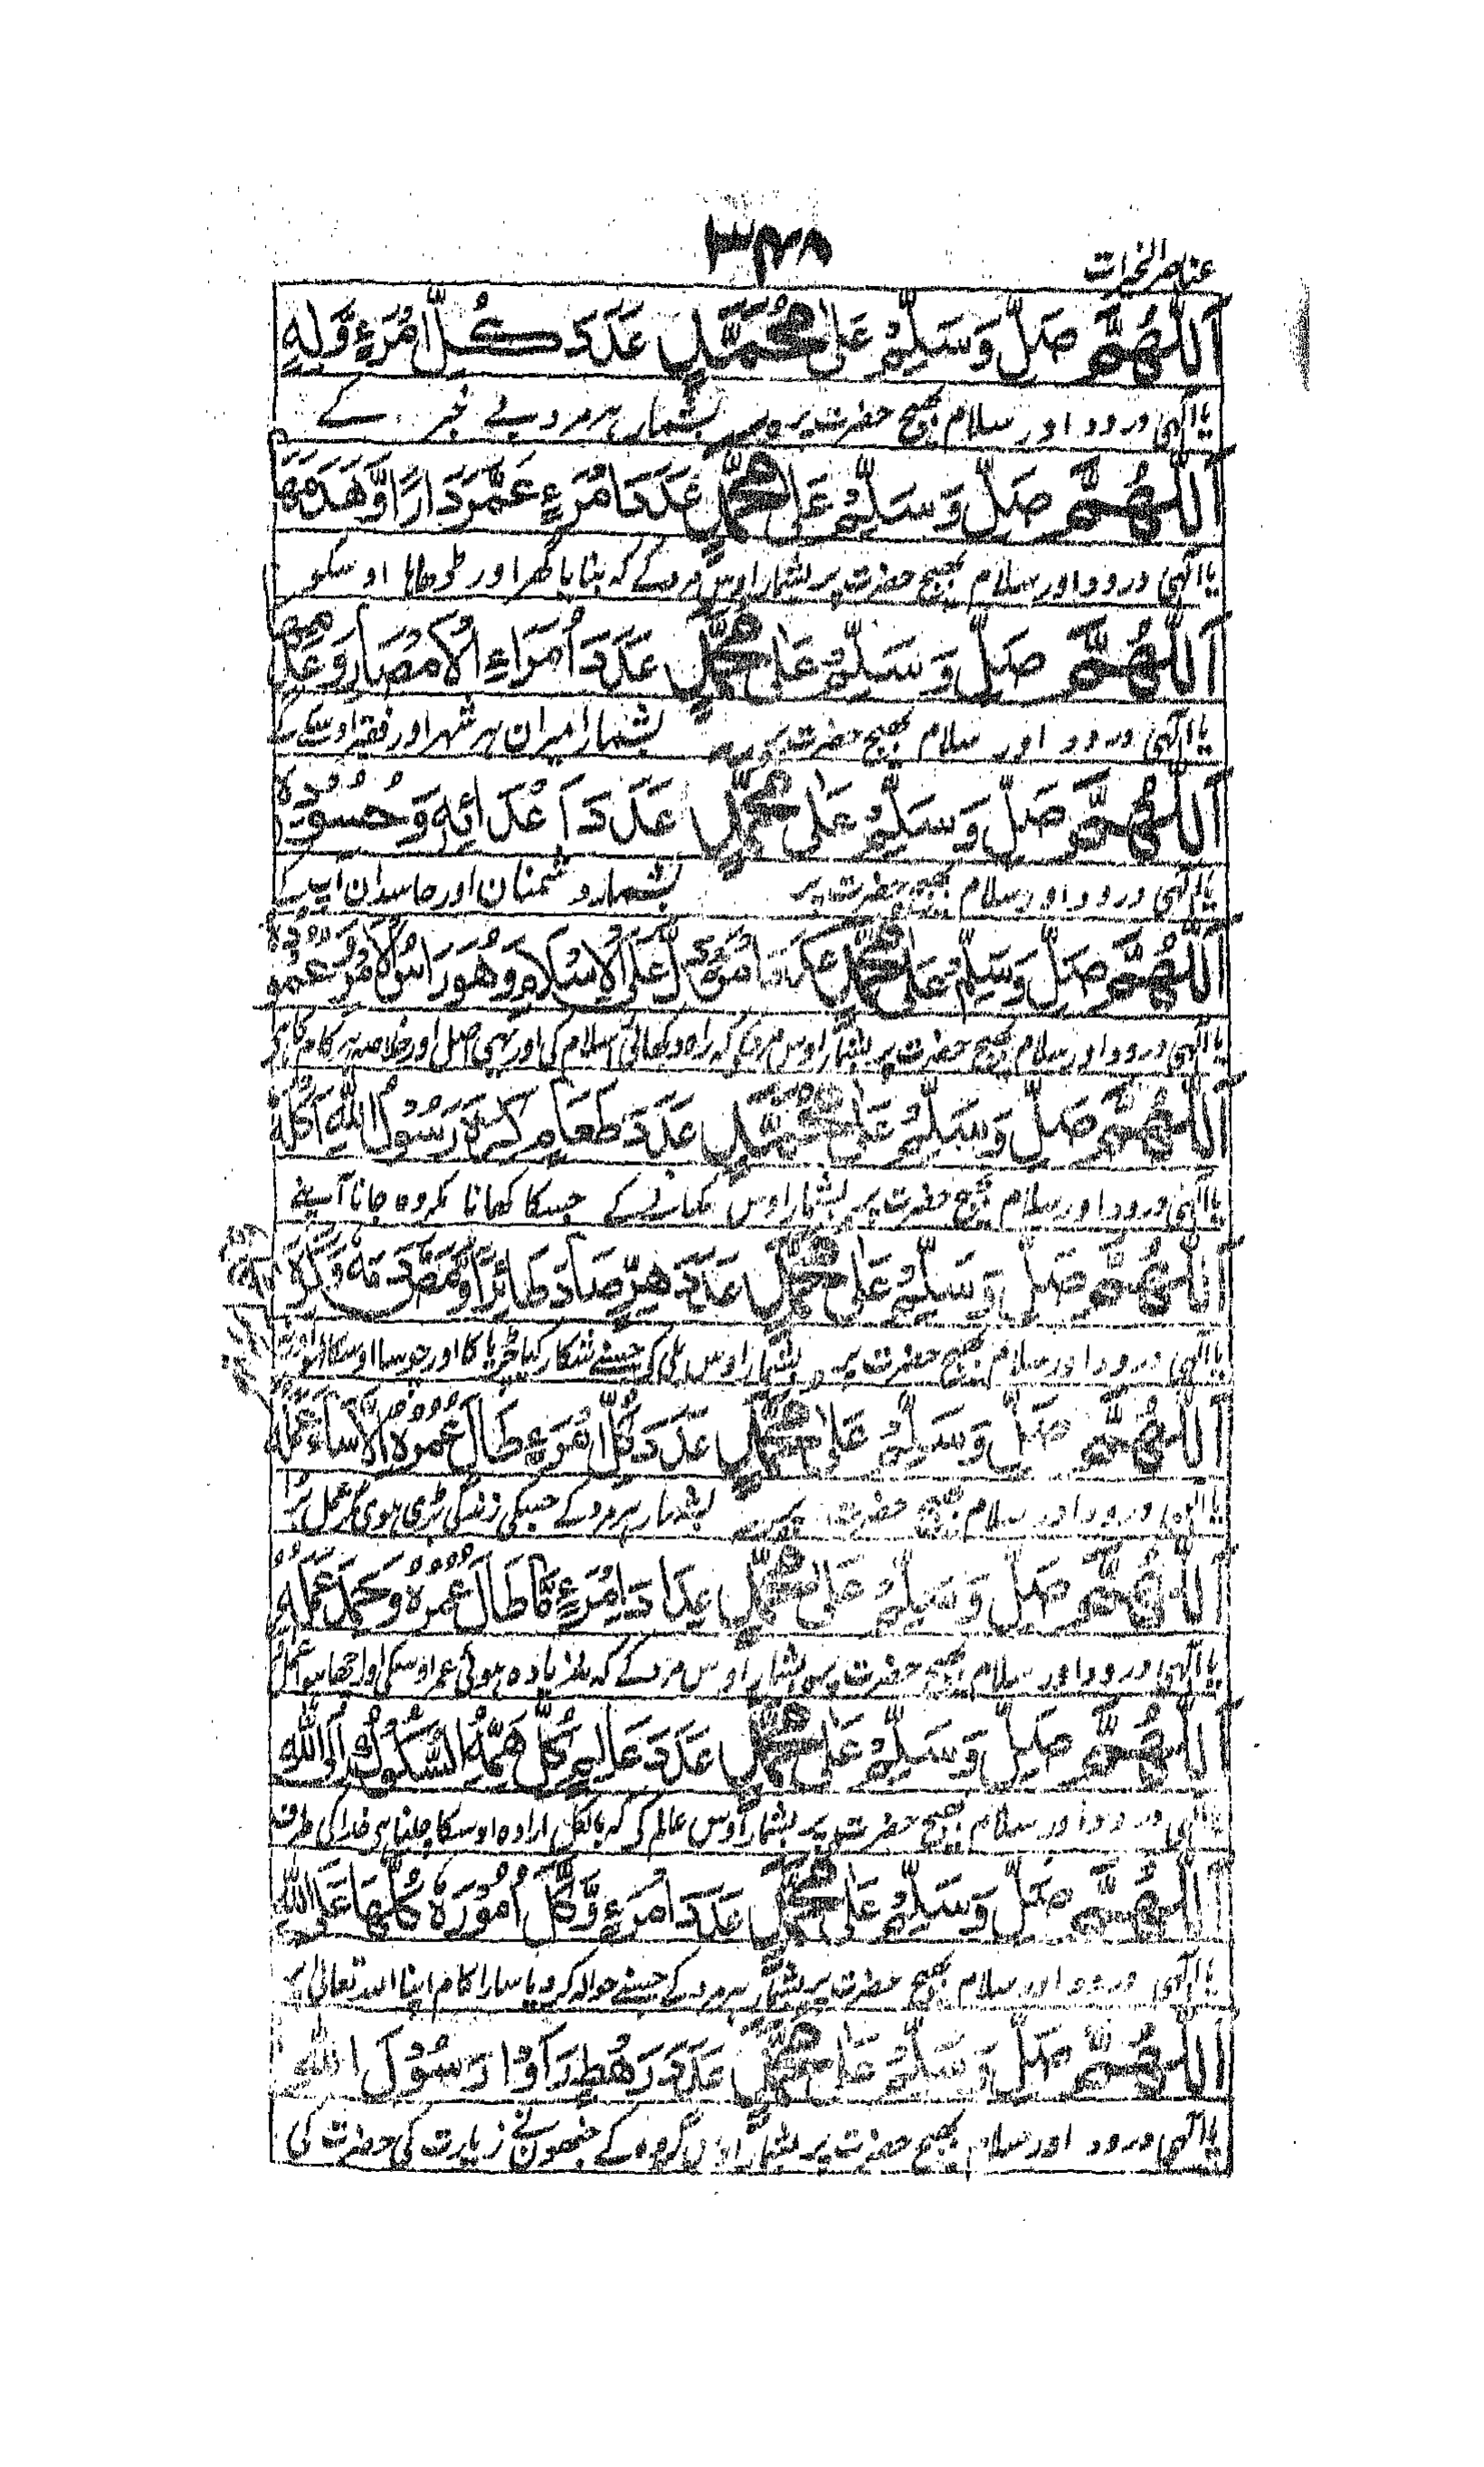 ۳۴۸
عناصر الخیرات
اَللّٰهُمَّ صَلِّ وَسَلِّمْ عَلٰى مُحَمَّدٍ عَدَدَ كُلِّ امْرَءٍ وَّلِهٍ
یا الٰہی درود اور سلام بھیج حضرت پر بشمار ہر مرد بے خبر کے
اَللّٰهُمَّ صَلِّ وَسَلِّمْ عَلٰى مُحَمَّدٍ عَدَدَ امْرَءٍ عَمَّرَ دَارًا وَّهَدَمَهَا
یا الٰہی درود اور سلام بھیج حضرت پر بشمار اوس مرد کے کہ بنایا گھر اور ڈھایا اوسکو
اَللّٰهُمَّ صَلِّ وَسَلِّمْ عَلٰى مُحَمَّدٍ عَدَدَ اُمَرَاءِ الْاَمْصَارِ
یا الٰہی درود اور سلام بھیج حضرت پر بشمار امیران ہر شہر اور فقیر اوسکے کے
اَللّٰهُمَّ صَلِّ وَسَلِّمْ عَلٰى مُحَمَّدٍ عَدَدَ اَعْدَائِهٖ وَحُسُوْدِهٖ
یا الٰہی درود اور سلام بھیج حضرت پر بشمار دشمنان اور حاسدان آپ کے
اَللّٰهُمَّ صَلِّ وَسَلِّمْ عَلٰى مُحَمَّدٍ عَدَدَ امْرَءٍ دَلَّ عَلَى الْاِسْلَامِ وَهُوَ رَاسُ الْاُمُوْرِ
یا الٰہی درود اور سلام بھیج حضرت پر بشمار اوس مرد کے کہ راہ دکھائی اسلام کی اور یہی اصل اور خلاصہ ہر کام کا ہے
اَللّٰهُمَّ صَلِّ وَسَلِّمْ عَلٰى مُحَمَّدٍ عَدَدَ طَعَامٍ كَرِهَ رَسُوْلُ اللّٰهِ اَكْلَهٗ
یا الٰہی درود اور سلام بھیج حضرت پر بشمار اوس کھانے کے جسکا کھانا مکروہ جانا آپنے
اَللّٰهُمَّ صَلِّ وَسَلِّمْ عَلٰى مُحَمَّدٍ عَدَدَ هِرٍّ صَادَ طَائِرًا وَّمَصَّ دَمَهٗ
یا الٰہی درود اور سلام بھیج حضرت پر بشمار اوس بلی کے جسنے شکار کیا چڑیا کا اور چوسا اوسکا لہو
اَللّٰهُمَّ صَلِّ وَسَلِّمْ عَلٰى مُحَمَّدٍ عَدَدَ كُلِّ امْرَءٍ طَالَ عُمْرُهٗ اِلَّا سَاءَ عَمَلُهٗ
یا الٰہی درود اور سلام بھیج حضرت پر بشمار ہر مرد کے جسکی زندگی بڑی ہوی مگر عمل برا
اَللّٰهُمَّ صَلِّ وَسَلِّمْ عَلٰى مُحَمَّدٍ عَدَدَ امْرَءٍ مَّا طَالَ عُمْرُهٗ وَحَمُلَ عَمَلُهٗ
یا الٰہی درود اور سلام بھیج حضرت پر بشمار اوس مرد کے کہ نہ زیادہ ہوئی عمر اوسکی اور اچھا ہوا عمل
اَللّٰهُمَّ صَلِّ وَسَلِّمْ عَلٰى مُحَمَّدٍ عَدَدَ عَالِمٍ كُلُّ هَمِّهِ السُّلُوْكُ اِلَى اللّٰهِ
یا الٰہی درود اور سلام بھیج حضرت پر بشمار اوس عالم کے کہ بالکل ارادہ اوسکا چلنا ہی خدا کی طرف
اَللّٰهُمَّ صَلِّ وَسَلِّمْ عَلٰى مُحَمَّدٍ عَدَدَ امْرَءٍ وَّكَّلَ اُمُوْرَهٗ كُلَّهَا عَلَى اللّٰهِ
یا الٰہی درود اور سلام بھیج حضرت پر بشمار ہر مرد کے جسنے حوالہ کر دیا سارا کام اپنا اللہ تعالیٰ پر
اَللّٰهُمَّ صَلِّ وَسَلِّمْ عَلٰى مُحَمَّدٍ عَدَدَ رَهْطٍ رَاَوْا رَسُوْلَ اللّٰهِ
یا الٰہی درود اور سلام بھیج حضرت پر بشمار اوس گروہ کے جنھوں نے زیارت کی حضرت کی